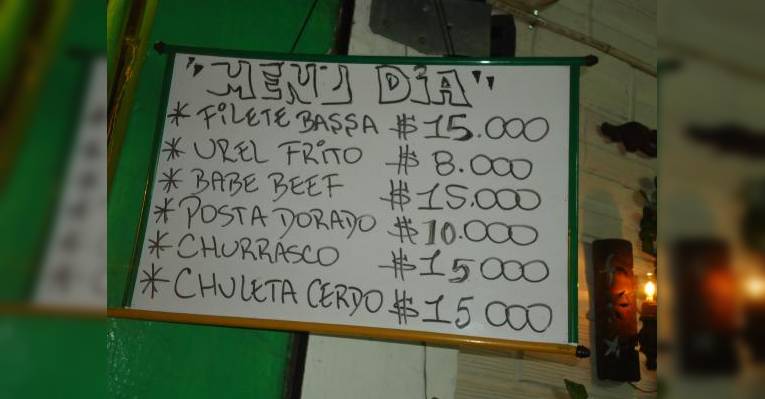 "MENU DiA"
* FILETE BASSA $ 15.000
* UREL FRITO $ 8.000
* BABE BEEF $ 15.000
* POSTA DORADO $ 10.000
* CHURRASCO $ 15 000
* CHULETA CERDO $ 15 000